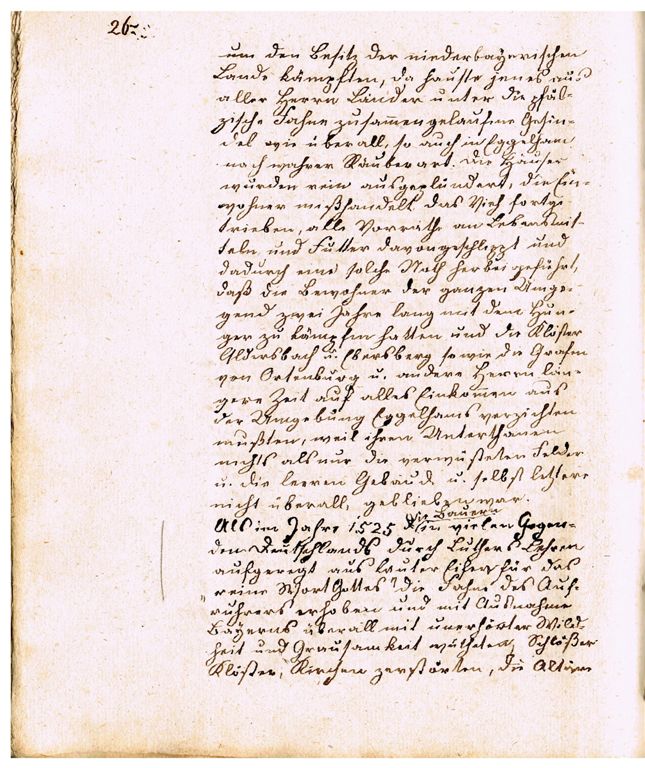 26
um den Besitz der niederbayerischen
Lande kämpften, da hauste jenes aus
aller Herrn Länder unter die pfäl-
zische Fahne zusammengelaufene Gesin-
del wie überall, so auch in Eggelham
nach wahrer Räuberart. Die Häuser
wurden rein ausgeplündert, die Ein-
wohner mißhandelt das Vieh fortge
trieben, alle Vorräthe an Lebensmit-
teln und Futter davongeschleppt und
dadurch eine solche Noth herbei geführt,
daß die Bewohner der ganzen Umge-
gend zwei Jahre lang mit dem Hun-
ger zu kämpfen hatten und die Klöster
Aldersbach u. Ebersberg sowie die Grafen
von Ortenburg u. andere Herrn län-
gere Zeit auf alles Einkomen aus
der Umgebung Eggelhams verzichten
mußten, weil ihren Unterthanen
nichts als nur die verwüsteten Felder
u. die leeren Gebäude u. selbst letztere
nicht überall, geblieben war.
die Bauern
Als im Jahre 1525 in vielen Gegen-
den Deutschlands durch Luthers Lehren
aufgeregt aus lauter Eifer für das
"reine Wort Gottes" die Fahne des Auf-
ruhrers erhoben und mit Ausnahme
Bayerns überall mit unerhörter Wild-
heit und Grausamkeit wütheten, Schlößer
Klöster, Kirchen zerstörten, die Altäre